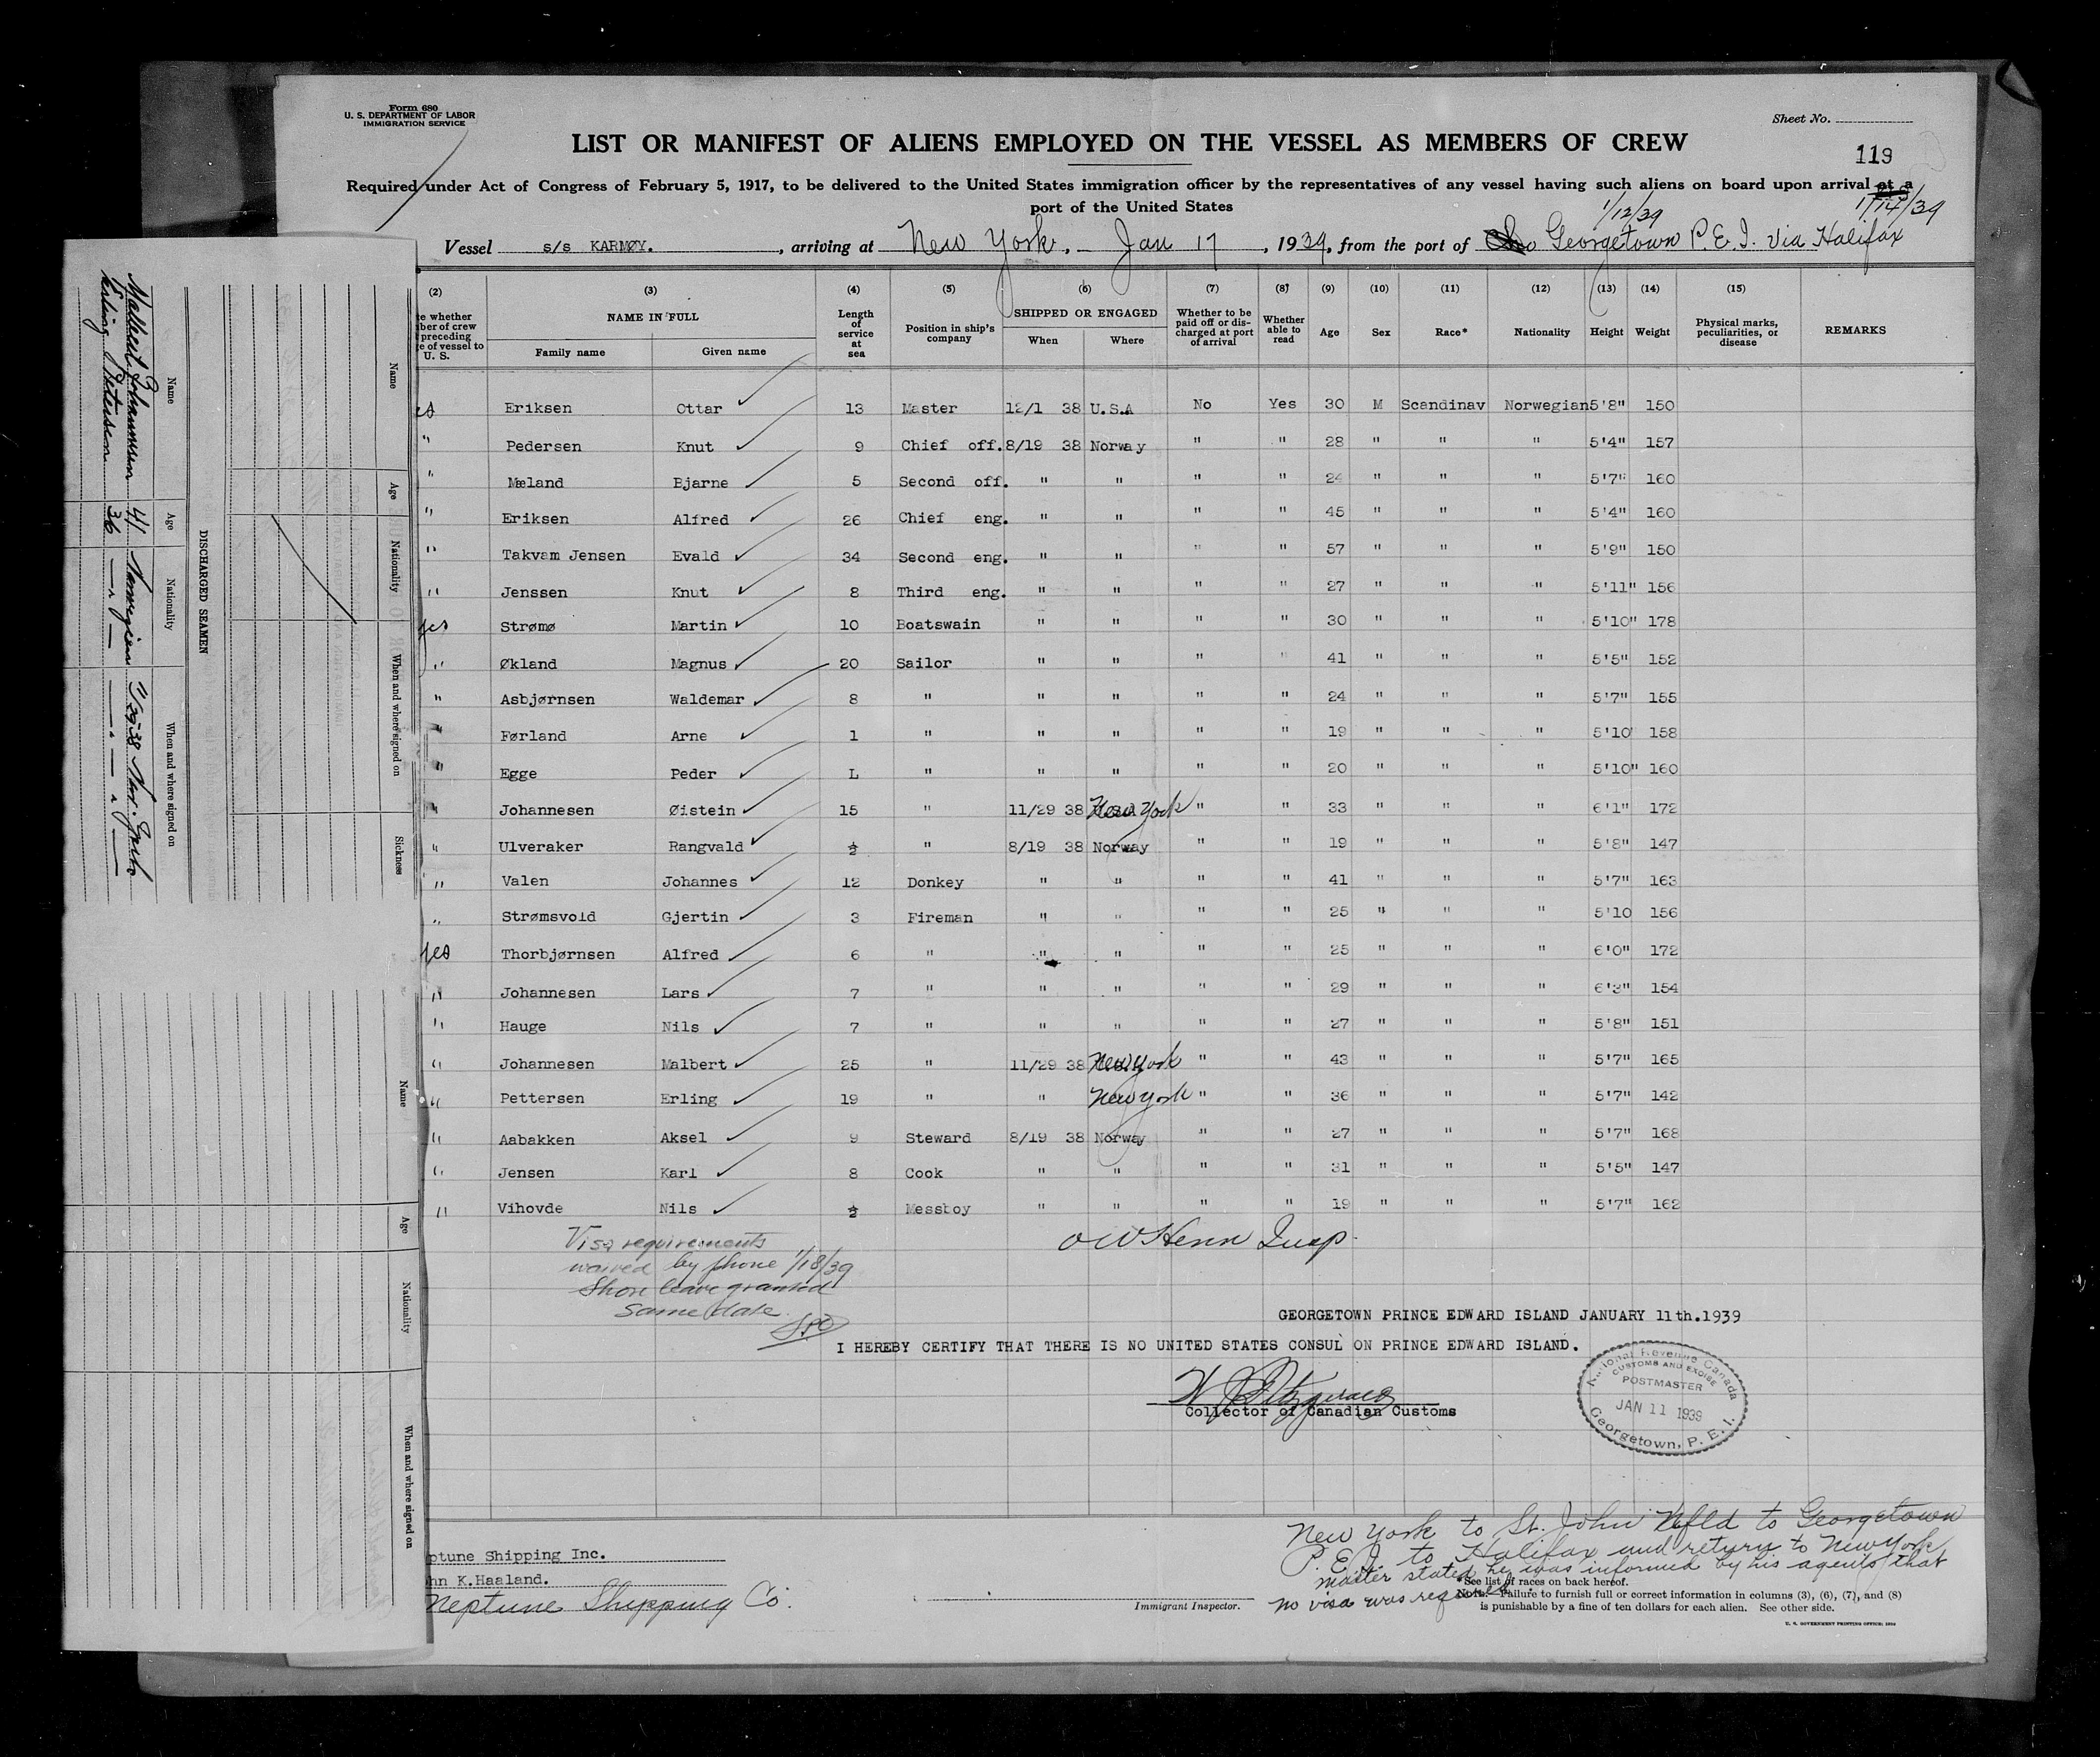 Form 680
U. S. DEPARTMENT OF LABOR
IMMIGRATION SERVICE
Sheet No.
LIST OR MANIFEST OF ALIENS EMPLOYED ON THE VESSEL AS MEMBERS OF CREW
119
Required under Act of Congress of February 5, 1917, to be delivered to the United States immigration officer by the representatives of any vessel having such aliens on board upon arrival at a
port of the United States
1/12/39 1/14/39
Vessel s/s KARMØY. , arriving at New York, Jan 17 , 1939, from the port of Georgetown P.E.I. via Halifax
(2) (3) (4) (5) (6) (7) (8) (9) (10) (11) (12) (13) (14) (15)
e whether
ber of crew
preceding
e of vessel to
U. S.
NAME IN FULL
Family name Given name
Length of service at sea
Position in ship's company
SHIPPED OR ENGAGED
When Where
Whether to be paid off or discharged at port of arrival
Whether able to read
Age Sex Race* Nationality Height Weight
Physical marks, peculiarities, or disease
REMARKS
es Eriksen Ottar 13 Master 12/1 38 U.S.A No Yes 30 M Scandinav Norwegian 5'8" 150
" Pedersen Knut 9 Chief off. 8/19 38 Norway " " 28 " " " 5'4" 157
" Mæland Bjarne 5 Second off. " " " " 24 " " " 5'7" 160
" Eriksen Alfred 26 Chief eng. " " " " 45 " " " 5'4" 160
" Takvam Jensen Evald 34 Second eng. " " " " 57 " " " 5'9" 150
" Jenssen Knut 8 Third eng. " " " " 27 " " " 5'11" 156
yes Strømø Martin 10 Boatswain " " " " 30 " " " 5'10" 178
" Økland Magnus 20 Sailor " " " " 41 " " " 5'5" 152
" Asbjørnsen Waldemar 8 " " " " " 24 " " " 5'7" 155
" Førland Arne 1 " " " " " 19 " " " 5'10 158
" Egge Peder L " " " " " 20 " " " 5'10" 160
" Johannesen Øistein 15 " 11/29 38 New York " " 33 " " " 6'1" 172
" Ulveraker Rangvald ½ " 8/19 38 Norway " " 19 " " " 5'8" 147
" Valen Johannes 12 Donkey " " " " 41 " " " 5'7" 163
" Strømsvold Gjertin 3 Fireman " " " " 25 " " " 5'10 156
yes Thorbjørnsen Alfred 6 " " " " " 25 " " " 6'0" 172
" Johannesen Lars 7 " " " " " 29 " " " 6'3" 154
" Hauge Nils 7 " " " " " 27 " " " 5'8" 151
" Johannesen Malbert 25 " 11/29 38 New York " " 43 " " " 5'7" 165
" Pettersen Erling 19 " " New York " " 36 " " " 5'7" 142
" Aabakken Aksel 9 Steward 8/19 38 Norway " " 27 " " " 5'7" 168
" Jensen Karl 8 Cook " " " " 31 " " " 5'5" 147
" Vihovde Nils ½ Messboy " " " " 19 " " " 5'7" 162
Visa requirements
waived by phone 1/18/39
Shore leave granted
same date
O W Henn Insp.
GEORGETOWN PRINCE EDWARD ISLAND JANUARY 11th.1939
I HEREBY CERTIFY THAT THERE IS NO UNITED STATES CONSUL ON PRINCE EDWARD ISLAND.
Collector of Canadian Customs
National Revenue Canada
CUSTOMS AND EXCISE
POSTMASTER
JAN 11 1939
Georgetown, P. E. I.
New York to St. John Nfld to Georgetown
P. E. I. to Halifax and return to New York
master stated he was informed by his agents that
no visa was required.
ptune Shipping Inc.
hn K.Haaland.
Neptune Shipping Co.
Immigrant Inspector.
*See list of races on back hereof.
NOTE.—Failure to furnish full or correct information in columns (3), (6), (7), and (8)
is punishable by a fine of ten dollars for each alien. See other side.
U. S. GOVERNMENT PRINTING OFFICE:
DISCHARGED SEAMEN
Name Age Nationality When and where signed on
Malbert Johannesen 41 Norwegian 11/29-38 New York
Erling Petersen 36 — " — — " — " —
Name Age Nationality When and where signed on Sickness
Name Age Nationality When and where signed on